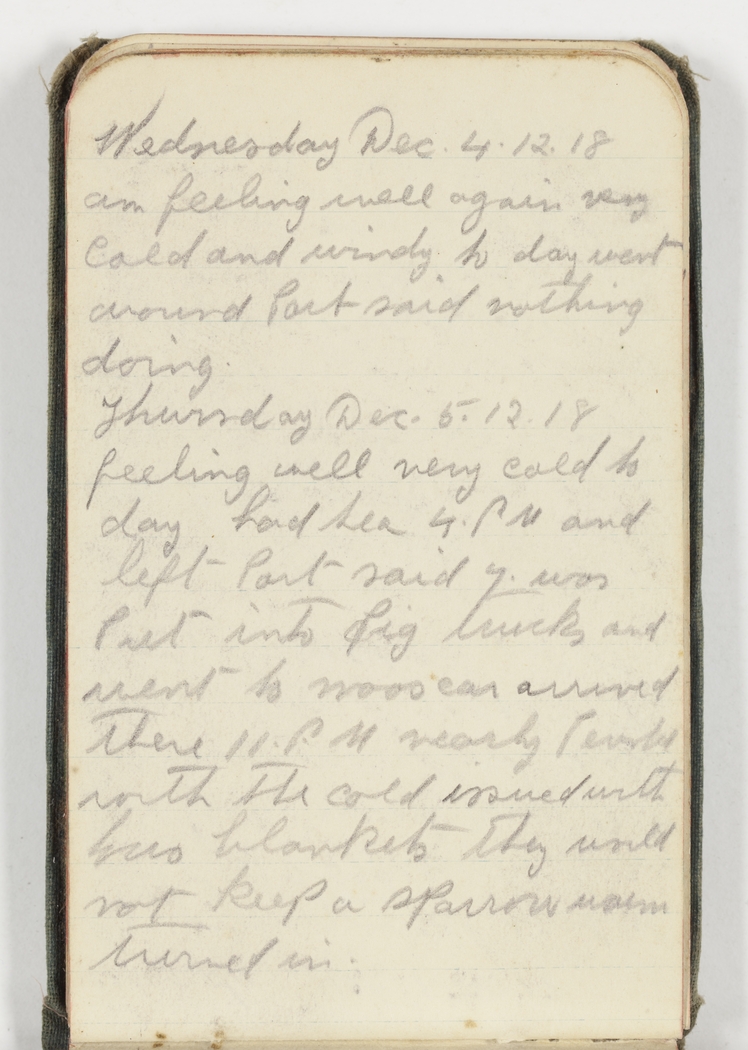 Wednesday Dec. 4.12.18
am feeling well again very
Cold and windy to day went
around Port said nothing
doing.
Thursday Dec. 5.12.18
feeling well very cold to
day had tea 4. P M and
left Port said 7. was
Put into Pig trucks and
went to moascar arrived
there 11. P M nearly Perished
with the cold issued with
two blankets they would
not keep a sparrow warm
turned in.